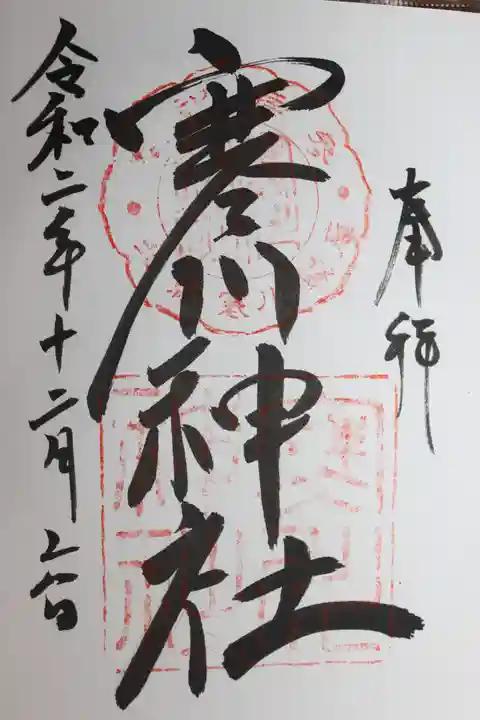 奉拝
寒川神社
令和二年十二月吉日